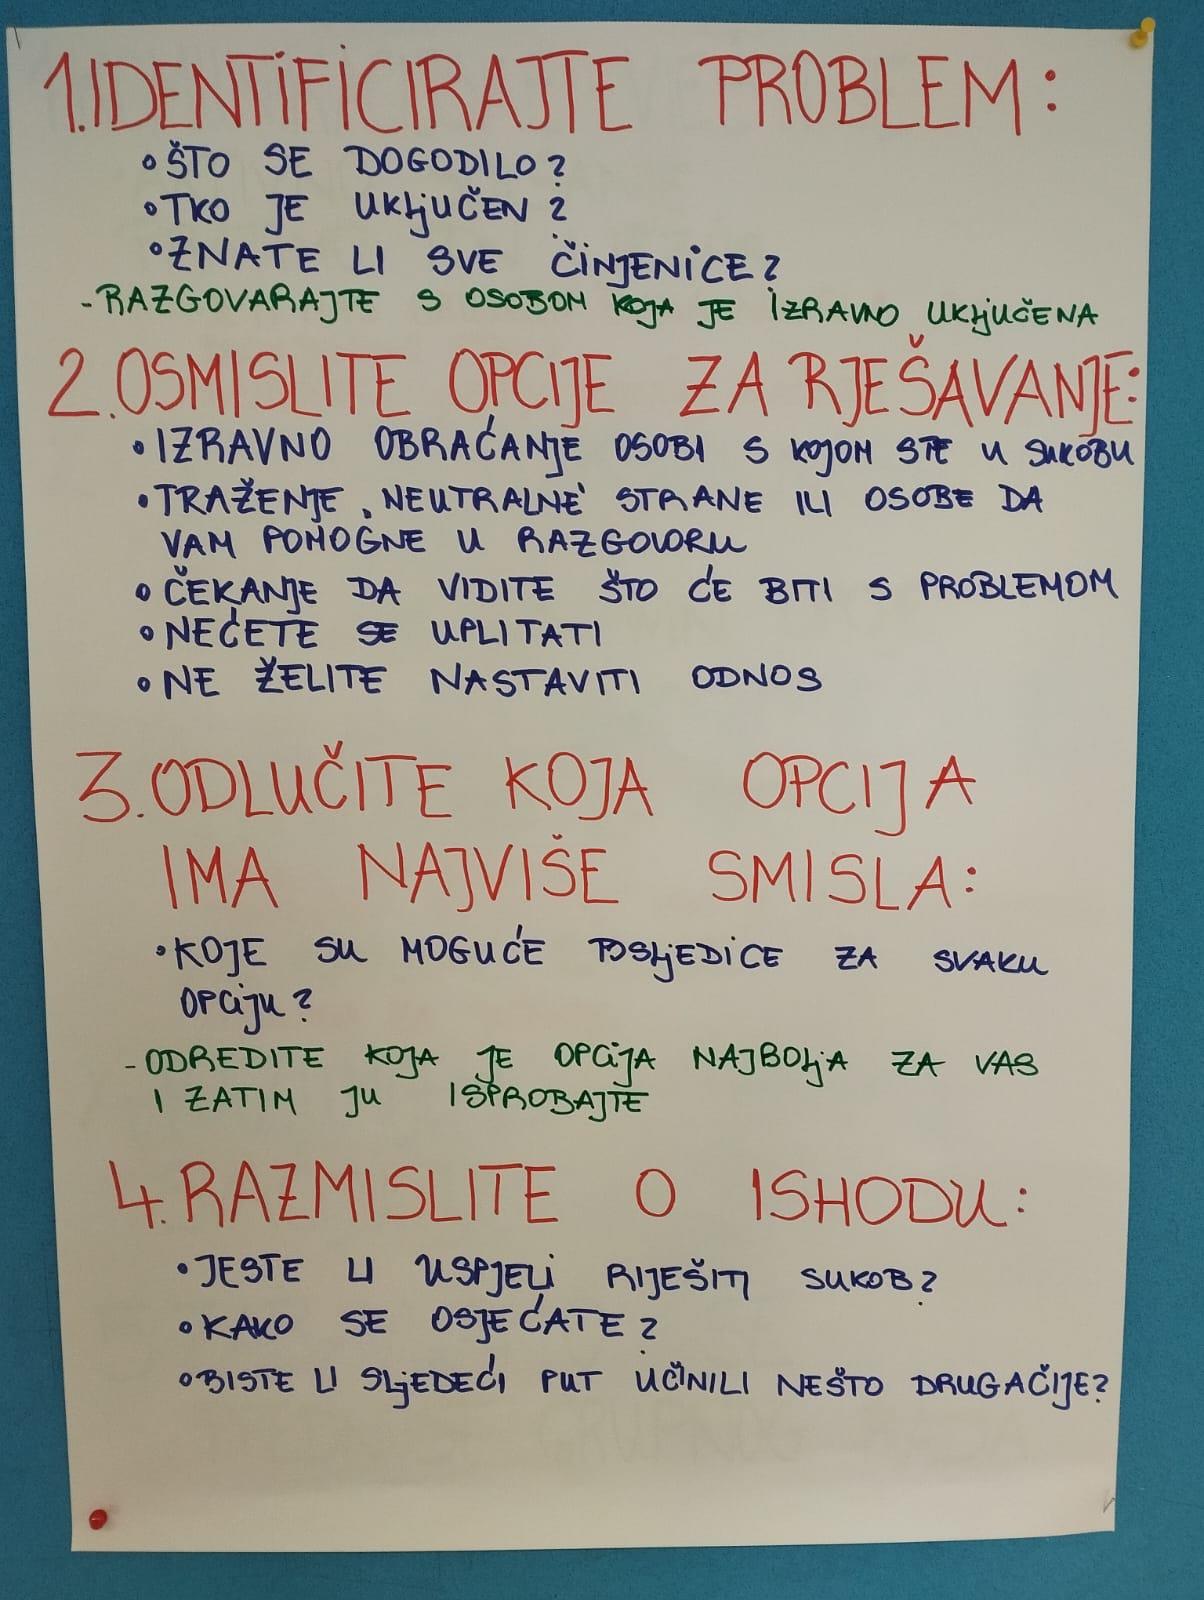 1.IDENTIFICIRAJTE PROBLEM:
• ŠTO SE DOGODILO?
• TKO JE UKLJUČEN?
• ZNATE LI SVE ČINJENICE?
- RAZGOVARAJTE S OSOBOM KOJA JE IZRAVNO UKLJUČENA
2.OSMISLITE OPCIJE ZA RJEŠAVANJE:
• IZRAVNO OBRAĆANJE OSOBI S KOJOM STE U SUKOBU
• TRAŽENJE NEUTRALNE STRANE ILI OSOBE DA
VAM POMOGNE U RAZGOVORU
• ČEKANJE DA VIDITE ŠTO ĆE BITI S PROBLEMOM
• NEĆETE SE UPLITATI
• NE ŽELITE NASTAVITI ODNOS
3.ODLUČITE KOJA OPCIJA
IMA NAJVIŠE SMISLA:
• KOJE SU MOGUĆE POSLJEDICE ZA SVAKU
OPCIJU?
- ODREDITE KOJA JE OPCIJA NAJBOLJA ZA VAS
I ZATIM JU ISPROBAJTE
4.RAZMISLITE O ISHODU:
• JESTE LI USPJELI RIJEŠITI SUKOB?
• KAKO SE OSJEĆATE?
• BISTE LI SLJEDEĆI PUT UČINILI NEŠTO DRUGAČIJE?